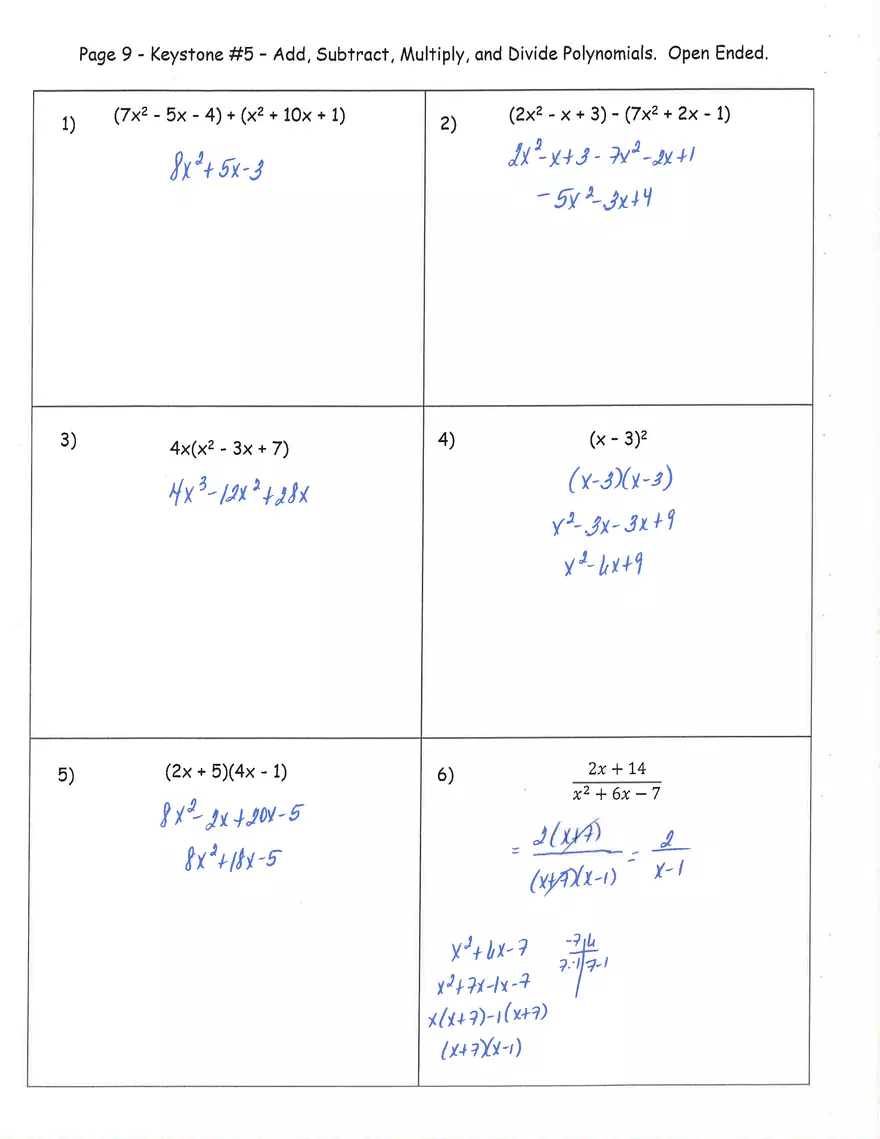 Page 9 - Keystone #5 – Add, Subtract, Multiply, and Divide Polynomials. Open Ended.
1) (7x² - 5x - 4) + (x² + 10x + 1)
8x² + 5x - 3
2) (2x² - x + 3) – (7x² + 2x - 1)
2x² - x + 3 - 7x² - 2x + 1
- 5x² - 3x + 4
3) 4x(x² - 3x + 7)
4x³ - 12x² + 28x
4) (x - 3)²
(x-3)(x-3)
x² - 3x - 3x + 9
x² - 6x + 9
5) (2x + 5)(4x - 1)
8x² - 2x + 20x - 5
8x² + 18x - 5
6) 2x + 14
x² + 6x − 7
= 2(x+7) = 2
(x+7)(x-1) x-1
x² + 6x - 7
-7 | 6
x² + 7x - 1x - 7
7·-1 | 7-1
x(x+7) - 1(x+7)
(x+7)(x-1)